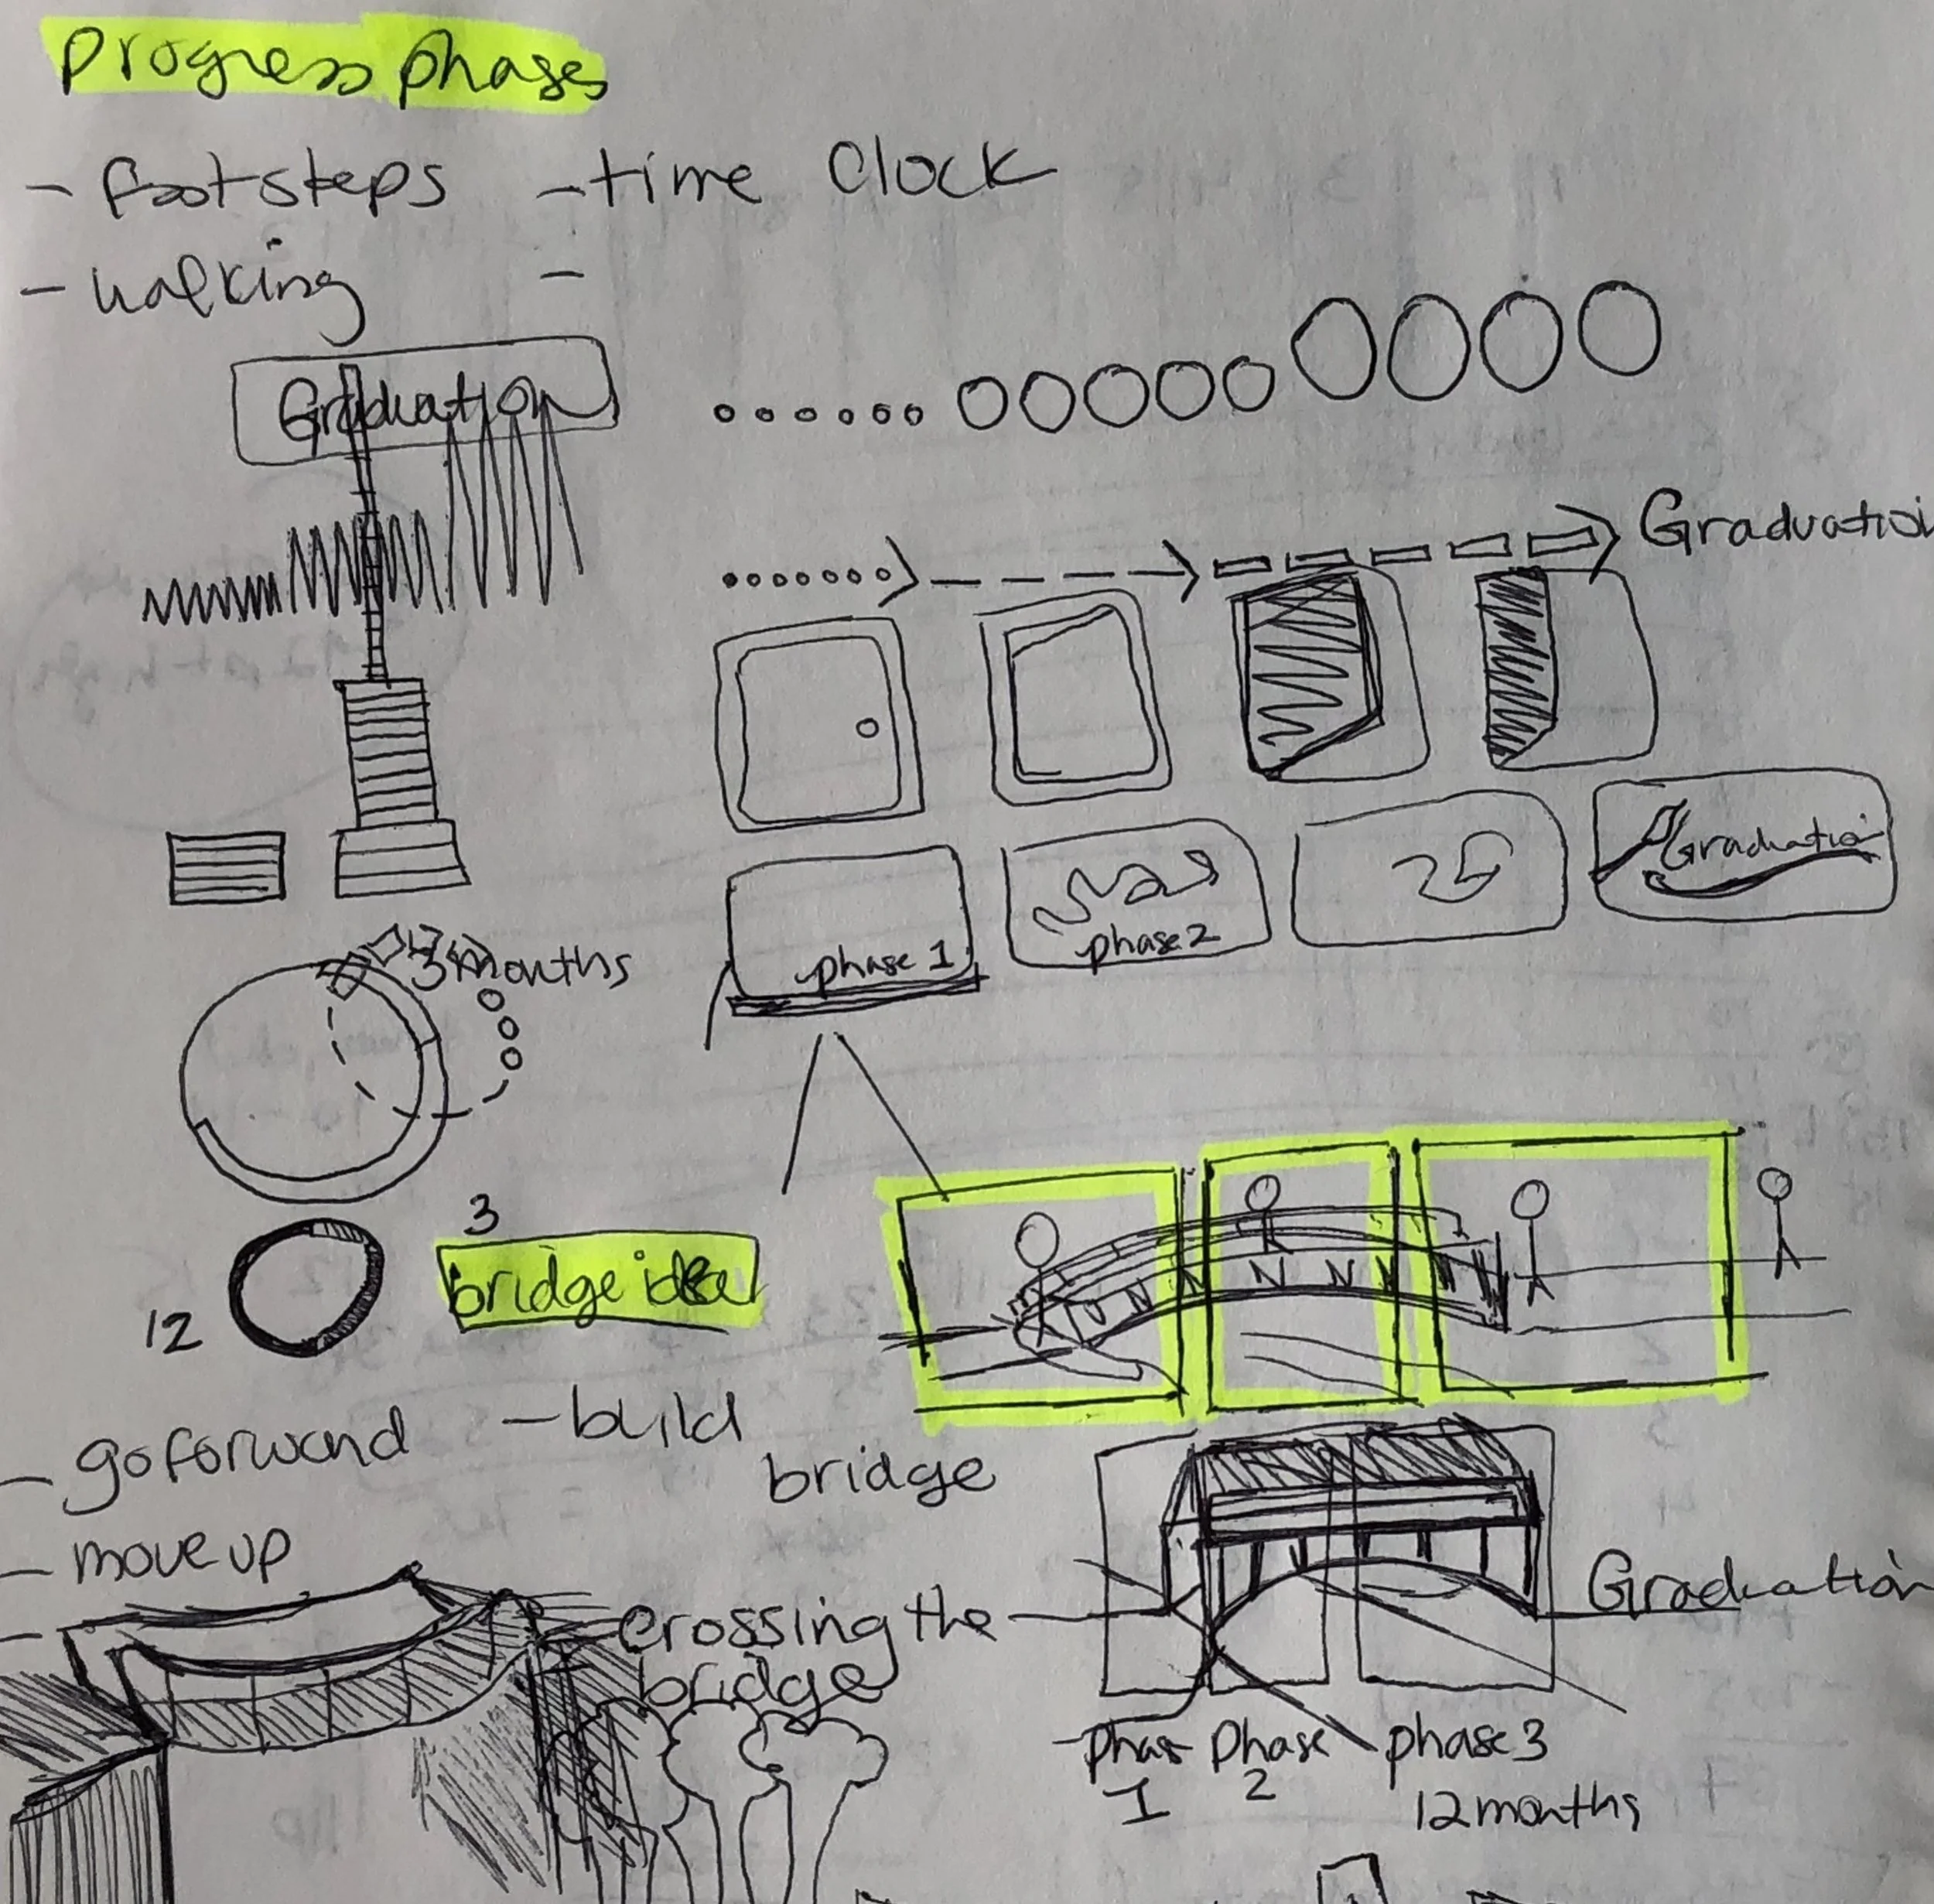 Progress phases
- footsteps
- time Clock
- walking
-
Graduation
Graduation
Graduation
phase 1
phase 2
3 months
3
12
bridge idea
- go forward
- build bridge
- move up
-
crossing the
bridge
Graduation
phas
1
phase
2
phase 3
12 months